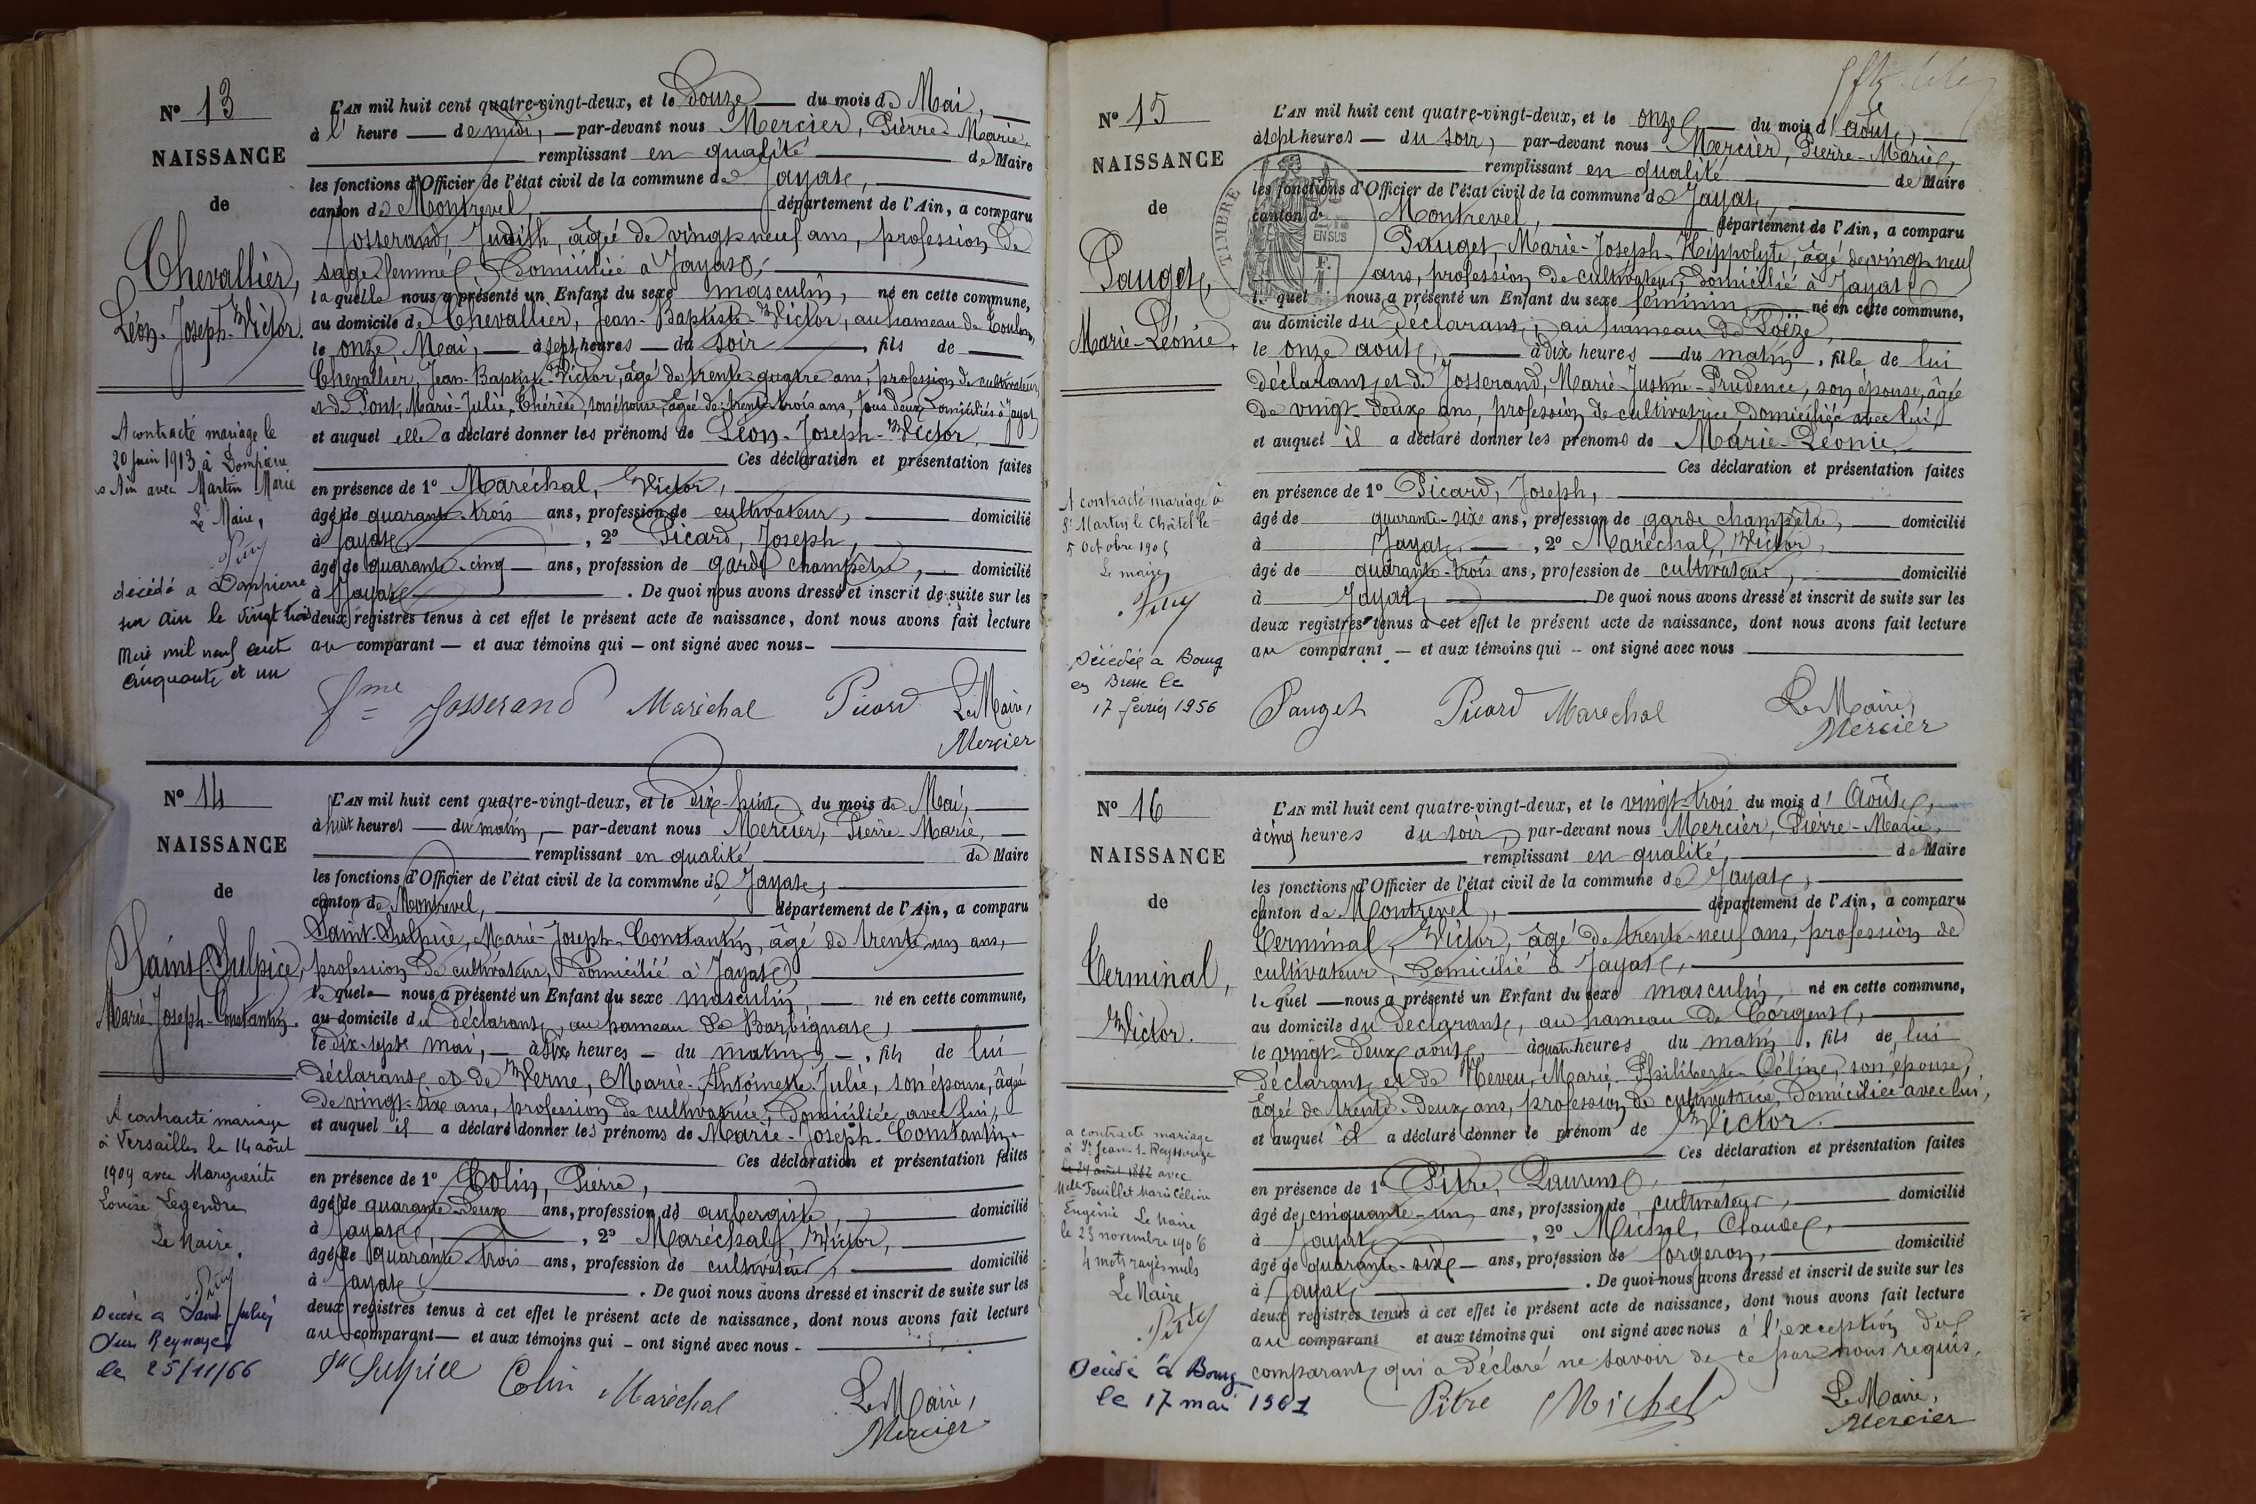 N° 13
NAISSANCE
de
Chevallier,
Léon-Joseph-Victor.
A contracté mariage le
20 juin 1913 à Dompierre
s Ain avec Martin Marie
Le Maire,
Pitry
décédé a Dompierre
sur ain le vingt trois
mil neuf cent
cinquante et un
L'AN mil huit cent quatre-vingt-deux, et le Douze du mois de Mai,
à l' heure de midi, par-devant nous Mercier, Pierre-Marie,
remplissant en qualité de Maire
les fonctions d'Officier de l'état civil de la commune de Jayat,
canton de Montrevel, département de l'Ain, a comparu
Josserand, Judith, âgée de vingt-neuf ans, profession de
sage-femme, Domiciliée à Jayat,
laquelle nous a présenté un Enfant du sexe masculin, né en cette commune,
au domicile de Chevallier, Jean-Baptiste-Victor, au hameau de
le onze Mai, à sept heures du soir, fils de
Chevallier, Jean-Baptiste-Victor, âgé de trente-quatre ans, profession de cultivateur,
et de Pont, Marie-Julie-Thérèse, son épouse, âgée de trente-trois ans, tous deux Domiciliés à Jayat,
et auquel elle a déclaré donner les prénoms de Léon-Joseph-Victor.
Ces déclaration et présentation faites
en présence de 1° Maréchal, Victor,
âgé de quarante-trois ans, profession de cultivateur, domicilié
à Jayat, 2° Picard, Joseph,
âgé de quarante-cinq ans, profession de garde champêtre, domicilié
à Jayat. De quoi nous avons dressé et inscrit de suite sur les
deux registres tenus à cet effet le présent acte de naissance, dont nous avons fait lecture
au comparant et aux témoins qui ont signé avec nous
Fme Josserand Maréchal Picard Le Maire,
Mercier
N° 14
NAISSANCE
de
Saint-Sulpice,
Marie-Joseph-Constantin.
A contracté mariage
à Versailles le 14 août
1909 avec Marguerite
Louise Legendre
Le Maire,
Pitry
Décédé à Saint-Julien
sur Reyssouze
le 25/11/66
L'AN mil huit cent quatre-vingt-deux, et le dix-huit du mois de Mai,
à huit heures du matin, par-devant nous Mercier, Pierre-Marie,
remplissant en qualité de Maire
les fonctions d'Officier de l'état civil de la commune de Jayat,
canton de Montrevel, département de l'Ain, a comparu
Saint-Sulpice, Marie-Joseph-Constantin, âgé de trente-un ans,
profession de cultivateur, domicilié à Jayat,
lequel nous a présenté un Enfant du sexe masculin, né en cette commune,
au domicile du déclarant, au hameau de Barbignat,
le dix-sept mai, à six heures du matin, fils de lui
déclarant et de Verne, Marie-Antoinette-Julie, son épouse, âgée
de vingt-six ans, profession de cultivatrice, domiciliée avec lui,
et auquel il a déclaré donner les prénoms de Marie-Joseph-Constantin.
Ces déclaration et présentation faites
en présence de 1° Colin, Pierre,
âgé de quarante-deux ans, profession de aubergiste, domicilié
à Jayat, 2° Maréchal, Victor,
âgé de quarante-trois ans, profession de cultivateur, domicilié
à Jayat. De quoi nous avons dressé et inscrit de suite sur les
deux registres tenus à cet effet le présent acte de naissance, dont nous avons fait lecture
au comparant et aux témoins qui ont signé avec nous.
St Sulpice Colin Maréchal Le Maire,
Mercier
N° 15
NAISSANCE
de
Pauget,
Marie-Léonie.
A contracté mariage à
St Martin le Châtel le
5 octobre 1905
Le maire
Pitry
Décédée à Bourg
en Bresse le
17 février 1956
TIMBRE
L'AN mil huit cent quatre-vingt-deux, et le onze du mois d'août,
à sept heures du soir, par-devant nous Mercier, Pierre-Marie,
remplissant en qualité de Maire
les fonctions d'Officier de l'état civil de la commune de Jayat,
canton de Montrevel, département de l'Ain, a comparu
Pauget, Marie-Joseph-Hippolyte, âgé de vingt-neuf
ans, profession de cultivateur, domicilié à Jayat,
lequel nous a présenté un Enfant du sexe féminin, né en cette commune,
au domicile du déclarant, au hameau de Loëze,
le onze août, à dix heures du matin, fille de lui
déclarant et de Josserand, Marie-Justine-Prudence, son épouse, âgée
de vingt-deux ans, profession de cultivatrice, domiciliée avec lui,
et auquel il a déclaré donner les prénoms de Marie-Léonie.
Ces déclaration et présentation faites
en présence de 1° Picard, Joseph,
âgé de quarante-six ans, profession de garde champêtre, domicilié
à Jayat, 2° Maréchal, Victor,
âgé de quarante-trois ans, profession de cultivateur, domicilié
à Jayat, De quoi nous avons dressé et inscrit de suite sur les
deux registres tenus à cet effet le présent acte de naissance, dont nous avons fait lecture
au comparant et aux témoins qui ont signé avec nous
Pauget Picard Maréchal Le Maire,
Mercier
N° 16
NAISSANCE
de
Terminal,
Victor.
a contracté mariage
à St Jean s. Reyssouze
le 24 août 1882 avec
Melle Feuillet Marie Céline
Eugénie Le Maire
le 23 novembre 1906
4 mots rayés nuls
Le Maire
Pitry
Décédé à Bourg
le 17 mai 1961
L'AN mil huit cent quatre-vingt-deux, et le vingt-trois du mois d'Août,
à cinq heures du soir, par-devant nous Mercier, Pierre-Marie,
remplissant en qualité, de Maire
les fonctions d'Officier de l'état civil de la commune de Jayat,
canton de Montrevel, département de l'Ain, a comparu
Terminal, Victor, âgé de trente-neuf ans, profession de
cultivateur, domicilié à Jayat,
lequel nous a présenté un Enfant du sexe masculin, né en cette commune,
au domicile du déclarant, au hameau de Corgent,
le vingt-deux août, à quatre heures du matin, fils de lui
déclarant et de Neveu, Marie-Philiberte-Céline, son épouse,
âgée de trente-deux ans, profession de cultivatrice, domiciliée avec lui,
et auquel il a déclaré donner le prénom de Victor.
Ces déclaration et présentation faites
en présence de 1° Pitre, Laurent,
âgé de cinquante-un ans, profession de cultivateur, domicilié
à Jayat, 2° Michel, Claude,
âgé de quarante-six ans, profession de forgeron, domicilié
à Jayat. De quoi nous avons dressé et inscrit de suite sur les
deux registres tenus à cet effet le présent acte de naissance, dont nous avons fait lecture
au comparant et aux témoins qui ont signé avec nous à l'exception du
comparant qui a déclaré ne savoir de ce par nous requis.
Pitre Michel Le Maire,
Mercier